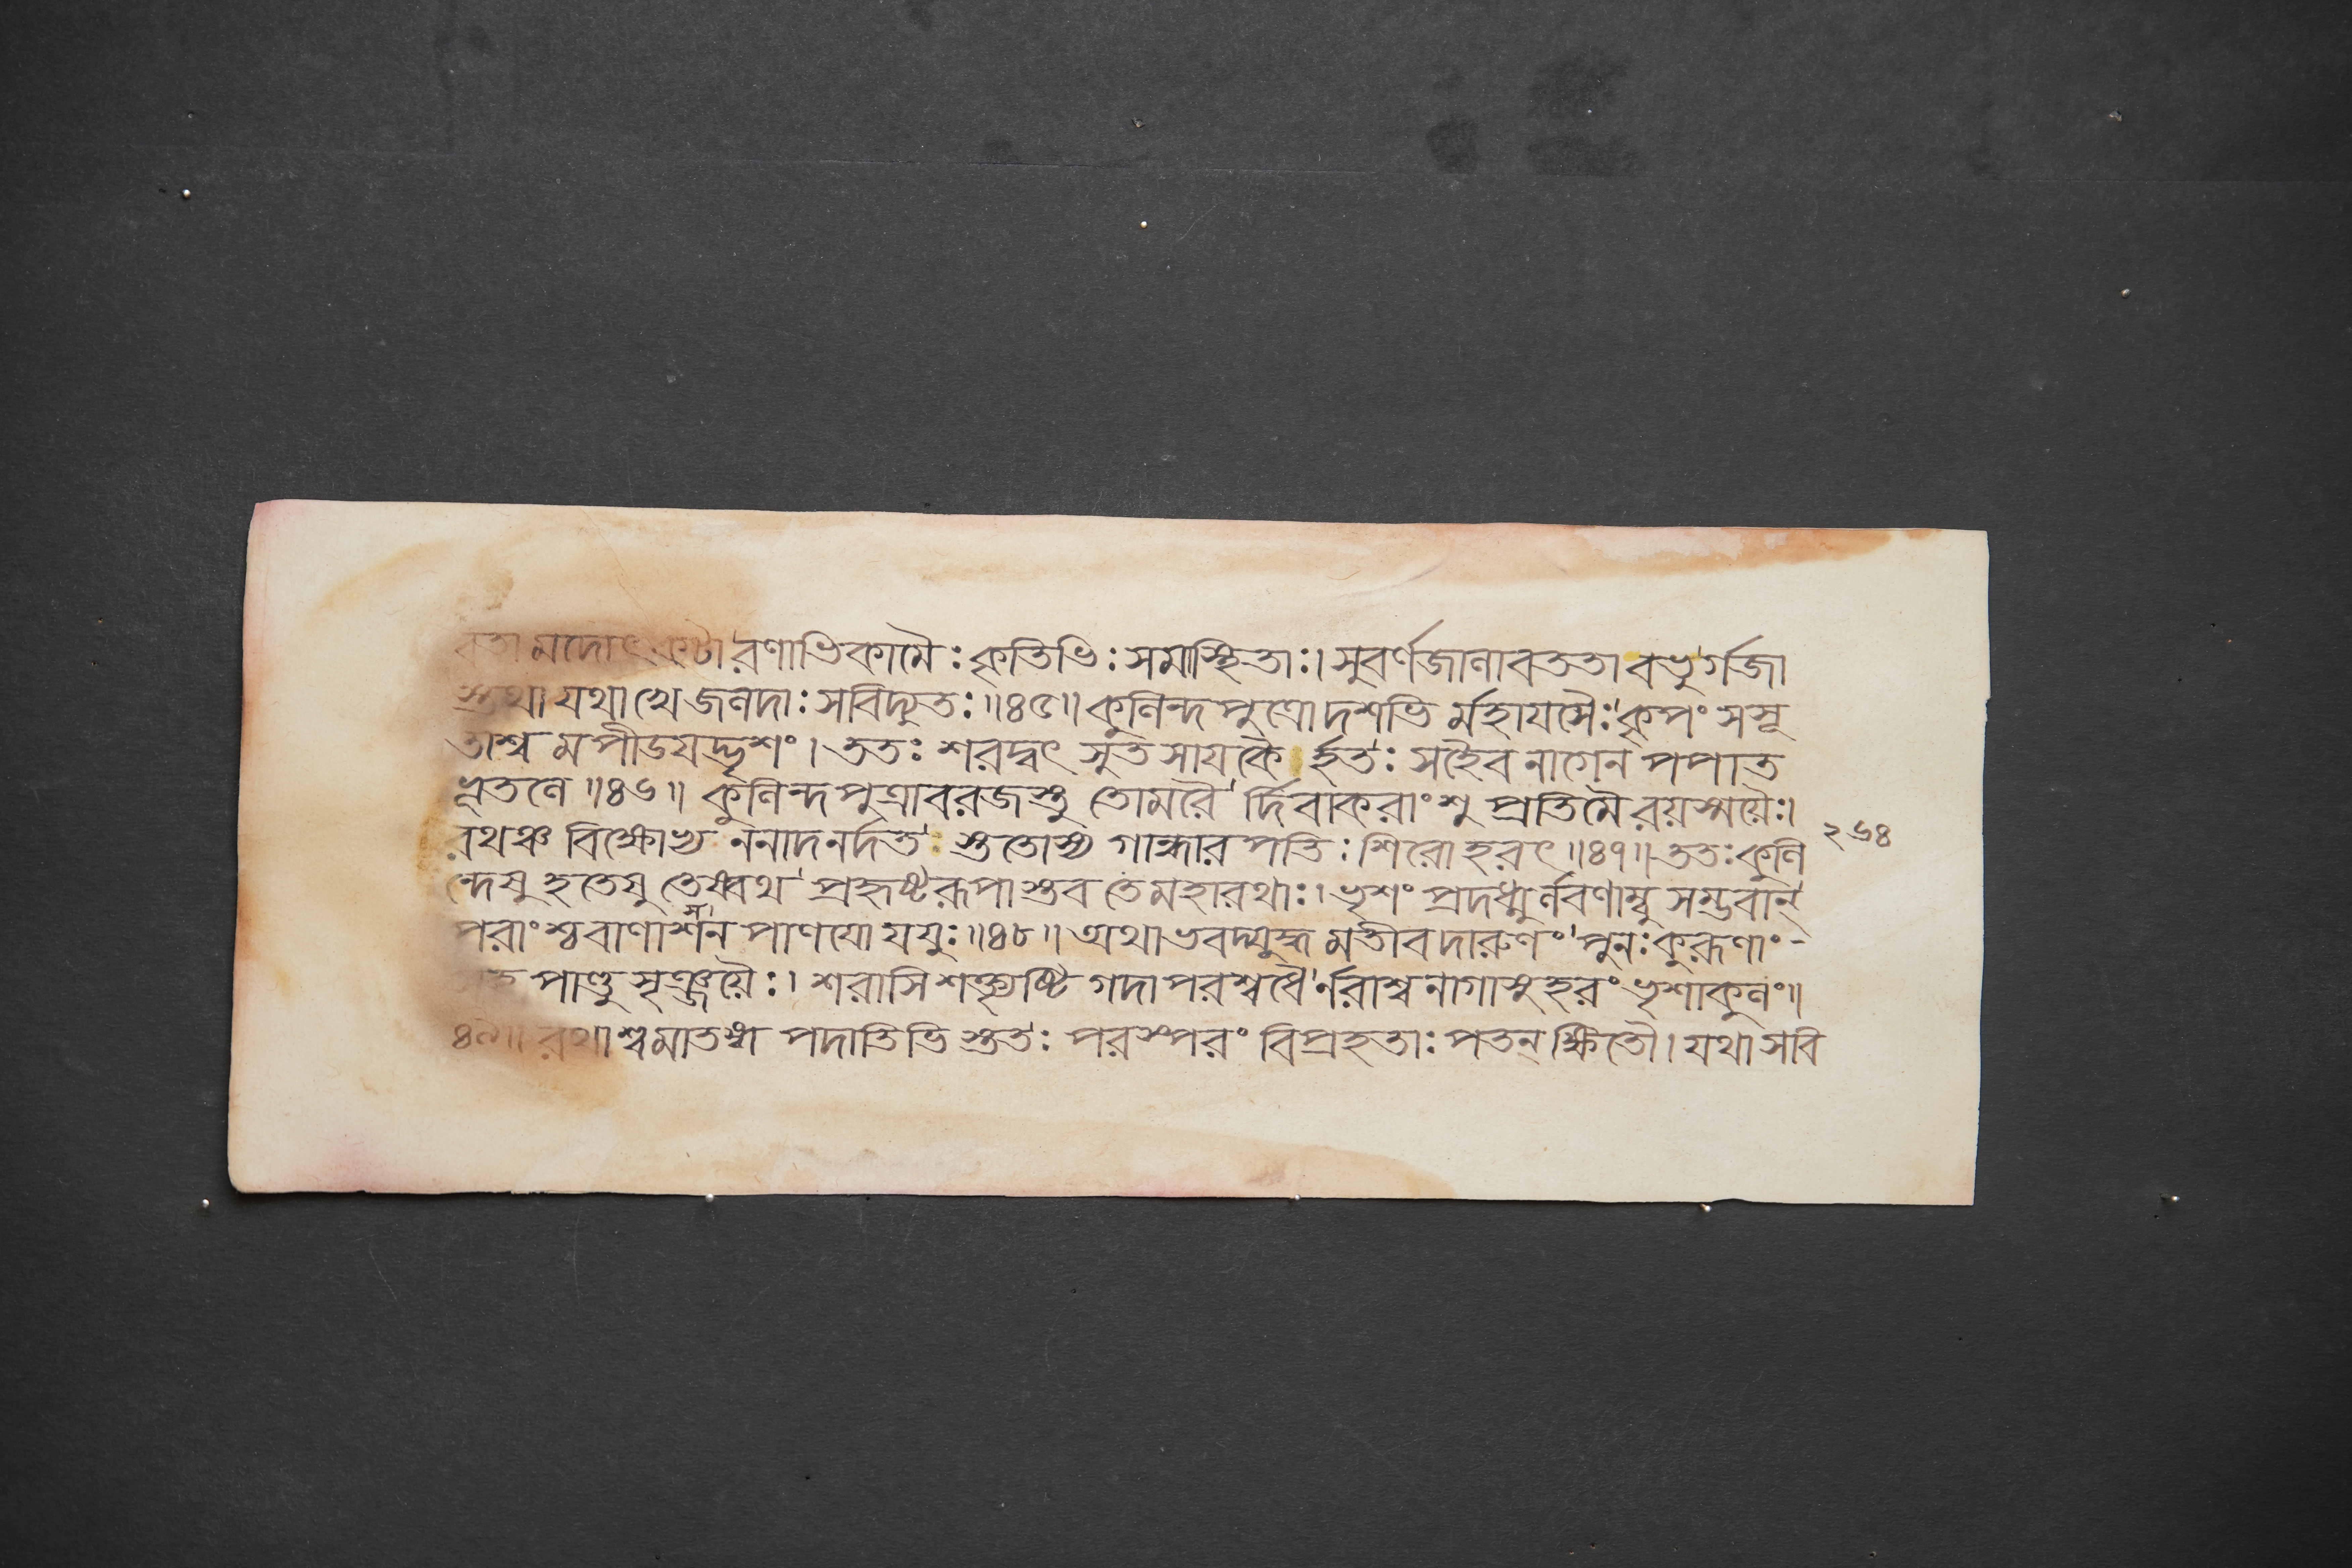 বতা মদোৎকটা রণাভিকামৈঃ কৃতিভিঃ সমাস্থিতাঃ। সুবর্ণজালাবততা বভুর্গজা
স্তথা যথা খে জলদাঃ সবিদ্যুতঃ ॥৪৫॥ কুলিন্দপুত্রো দশভির্মহাযসৈঃ কৃপং সসূ
তাশ্ব মপীডযদ্ভৃশং। ততঃ শরদ্বৎ সুত সাযকৈর্হতঃ সহৈব নাগেন পপাত
ভূতলে ॥৪৬॥ কুলিন্দপুত্রাবরজস্তু তোমরৈর্দিবাকরাংশু প্রতিমৈ রয়স্ময়ৈঃ।
রথঞ্চ বিক্ষোভ্য ননাদ নর্দত স্ততোস্য গান্ধারপতিঃ শিরোহরৎ ॥৪৭॥ ততঃ কুলি
২৬৪
ন্দেষু হতেষু তেষ্বথ প্রহৃষ্টরূপাস্তব তে মহারথাঃ। ভৃশং প্রদধ্মুর্লবণাম্বু সম্ভবান্
পরাংশ্চ বাণাসন পাণযো যযুঃ ॥৪৮॥ অথাভবদ্যুদ্ধ মতীবদারুণং পুনঃ কুরূণাং-
পাণ্ডু সৃঞ্জয়ৈঃ। শরাসি শক্ত্যৃষ্টি গদাপরশ্বধৈর্নরাশ্বনাগাসুহরং ভৃশাকুলং॥
৪৯॥ রথাশ্বমাতঙ্গ পদাতিভি স্ততঃ পরস্পরং বিপ্রহতাঃ পতন্ ক্ষিতৌ। যথা সবি